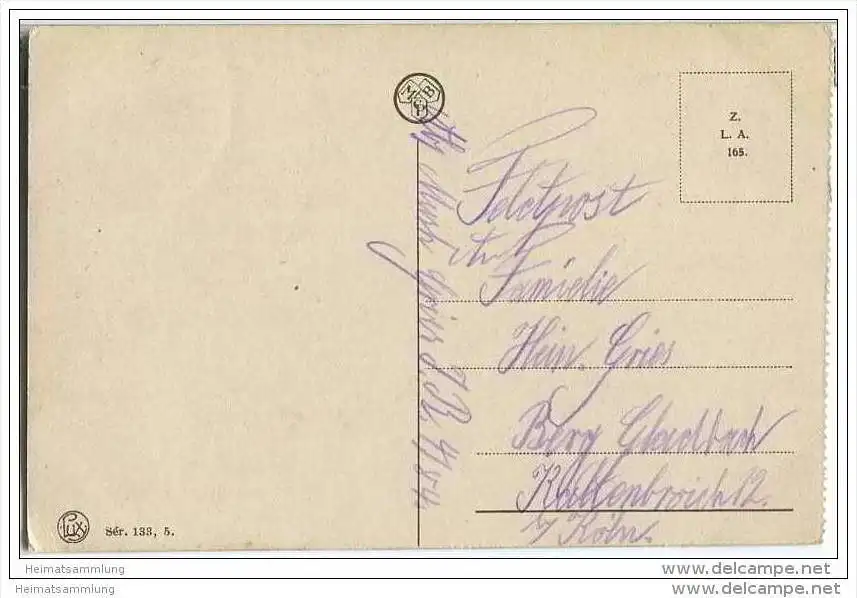 M B P
Z.
L. A.
165.
Feldpost
An
Familie
Hein. Gries
Berg Gladbach
Kaltenbroich 12.
b/ Köln.
Lux
Sér. 133, 5.
Heimatsammlung
www.delcampe.net
Heimatsammlung
www.delcampe.net